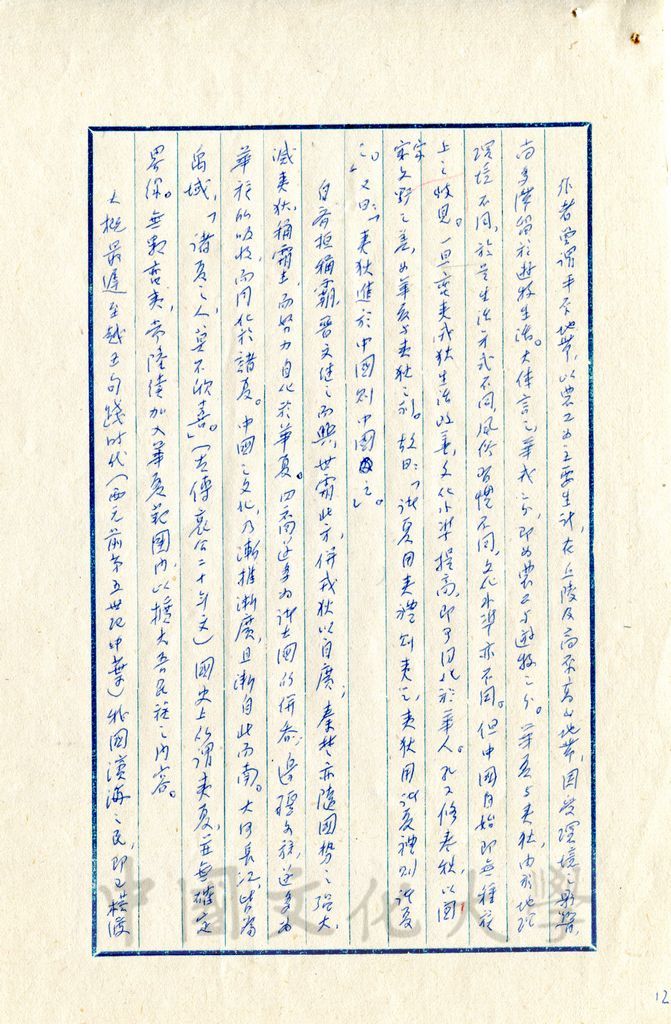 作者當謂平原地帶，以農工為主要生計，在丘陵及高原高山地帶，因受環境之影響，
尚多滯留於遊牧生活。大体言之，華戎之分，即為農工与遊牧之分。華夏与夷狄，由於地理
環境不同，於是生活方式不同，風俗習慣不同，文化水準亦不同。但中國自始即無種族
上之歧見。一旦蠻夷戎狄生活改善，文化水準提高，即可同化於華人。孔子修春秋，以國
家文野之差，为華夏与夷狄之別。故曰：「諸夏用夷禮則夷之，夷狄用諸夏禮則諸夏
之。」又曰：「夷狄進於中國則中國之」。
自齊桓稱霸，晉文繼之而興，世霸北方，併戎狄以自廣；秦楚亦隨國勢之強大，
滅夷狄，稱霸主，而努力自化於華夏。四裔逐多为諸大國的併吞；邊疆各族，逐多为
華族的吸收，而同化於諸夏。中國之文化，乃漸推漸廣，且漸自北而南。大河長江，皆為
禹域，「諸夏之人，莫不欣喜。」（左傳哀公二十年文）國史上所謂夷夏，並無確定
界線。無數蠻夷，常陸續加入華夏範圍內，以擴大吾民族之內容。
大概最遲至越王句踐時代（西元前第五世紀中葉）我國濱海之民，即已橫渡
中國文化大學
12